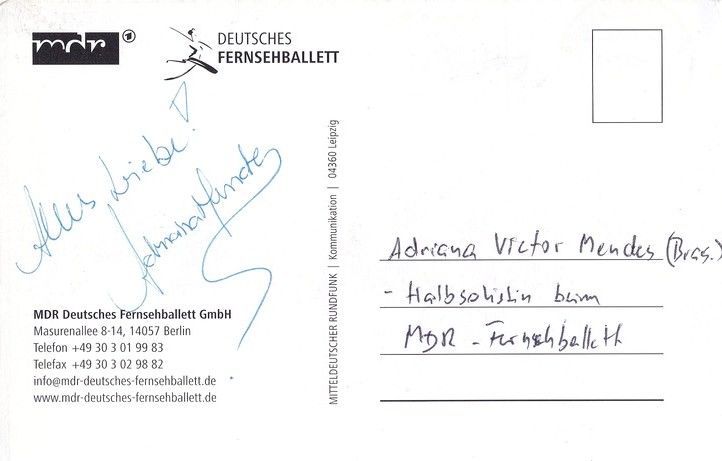 mdr
DEUTSCHES
FERNSEHBALLETT
Alles Liebe!
MDR Deutsches Fernsehballett GmbH
Masurenallee 8-14, 14057 Berlin
Telefon +49 30 3 01 99 83
Telefax +49 30 3 02 98 82
info@mdr-deutsches-fernsehballett.de
www.mdr-deutsches-fernsehballett.de
MITTELDEUTSCHER RUNDFUNK | Kommunikation | 04360 Leipzig
Adriana Victor Mendes (Bras.)
- Halbsolistin beim
MDR - Fernsehballett